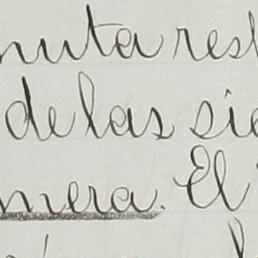 nuta res
de las sie
mera. El